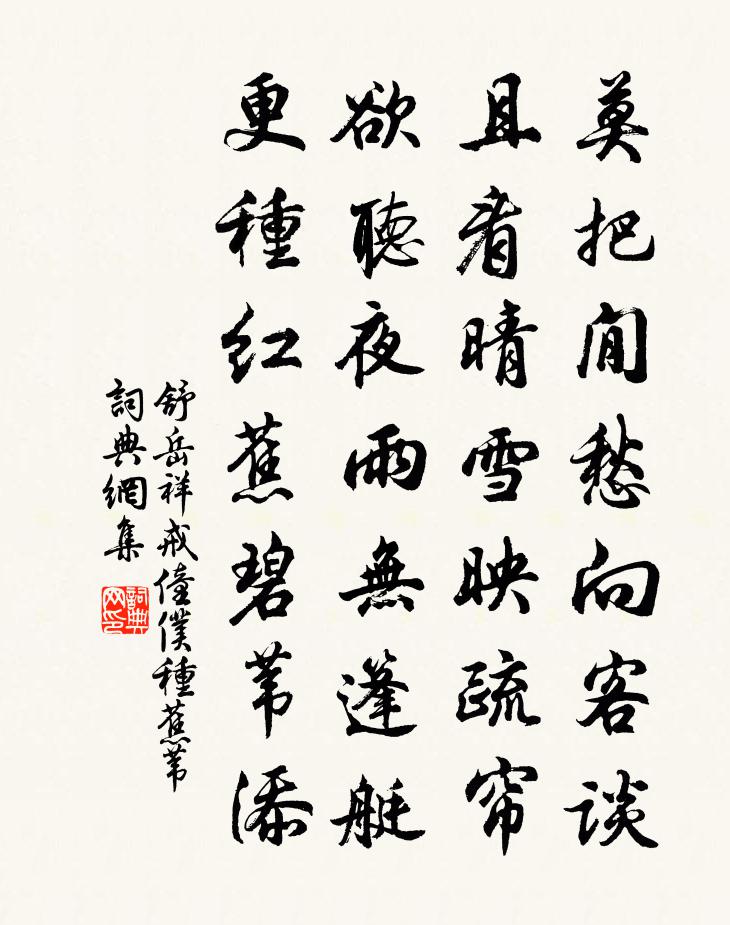 莫把閒愁向客談
且看晴雪映疏帘
欲聽夜雨無篷艇
更種红蕉碧苇添
舒岳祥戒僮僕種蕉苇
詞典網集
詞典网印